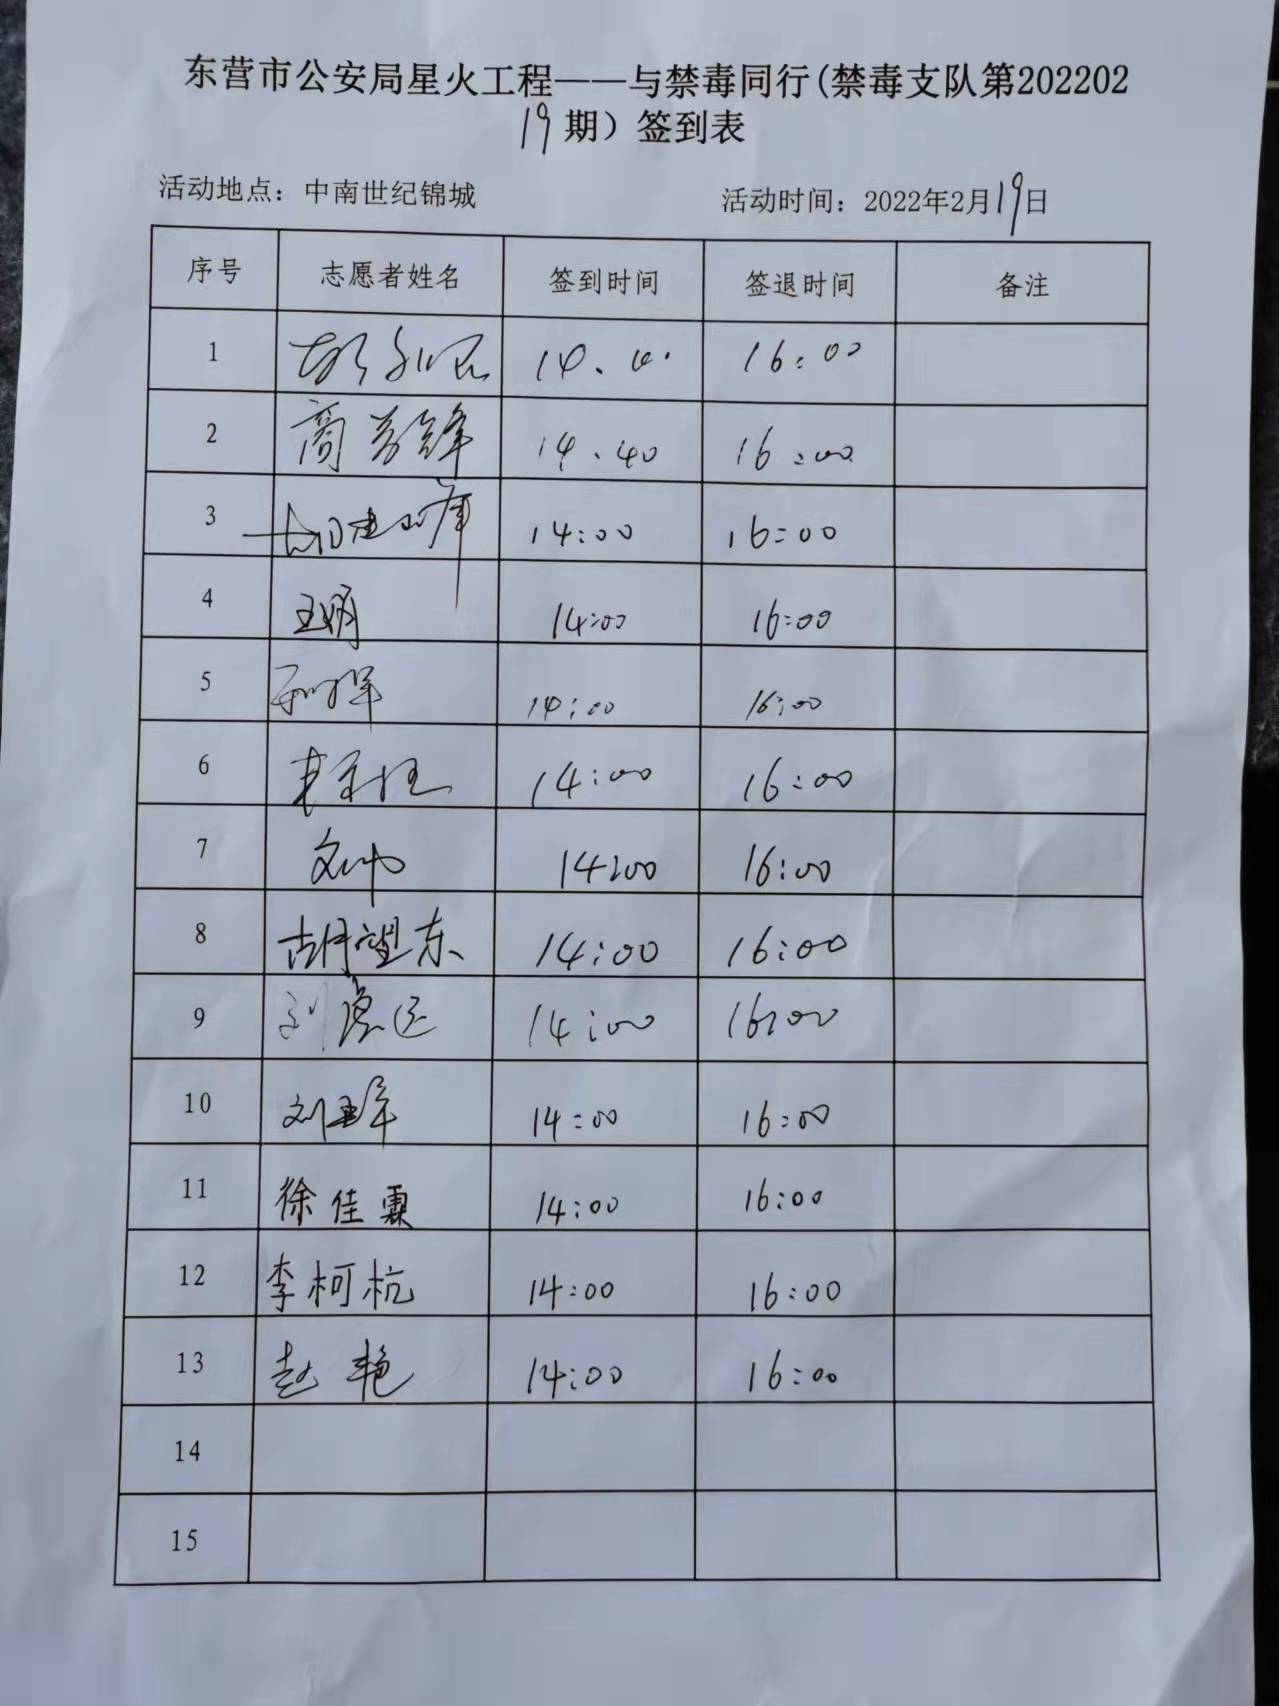 东营市公安局星火工程——与禁毒同行(禁毒支队第202202
19期）签到表
活动地点：中南世纪锦城 活动时间：2022年2月19日
序号 志愿者姓名 签到时间 签退时间 备注
1 16:00
2 14.40 16:00
3 14:00 16:00
4 14:00 16:00
5 14:00 16:00
6 14:00 16:00
7 14:00 16:00
8 胡望东 14:00 16:00
9 14:00 16:00
10 14:00 16:00
11 徐佳霖 14:00 16:00
12 李柯杭 14:00 16:00
13 赵艳 14:00 16:00
14
15